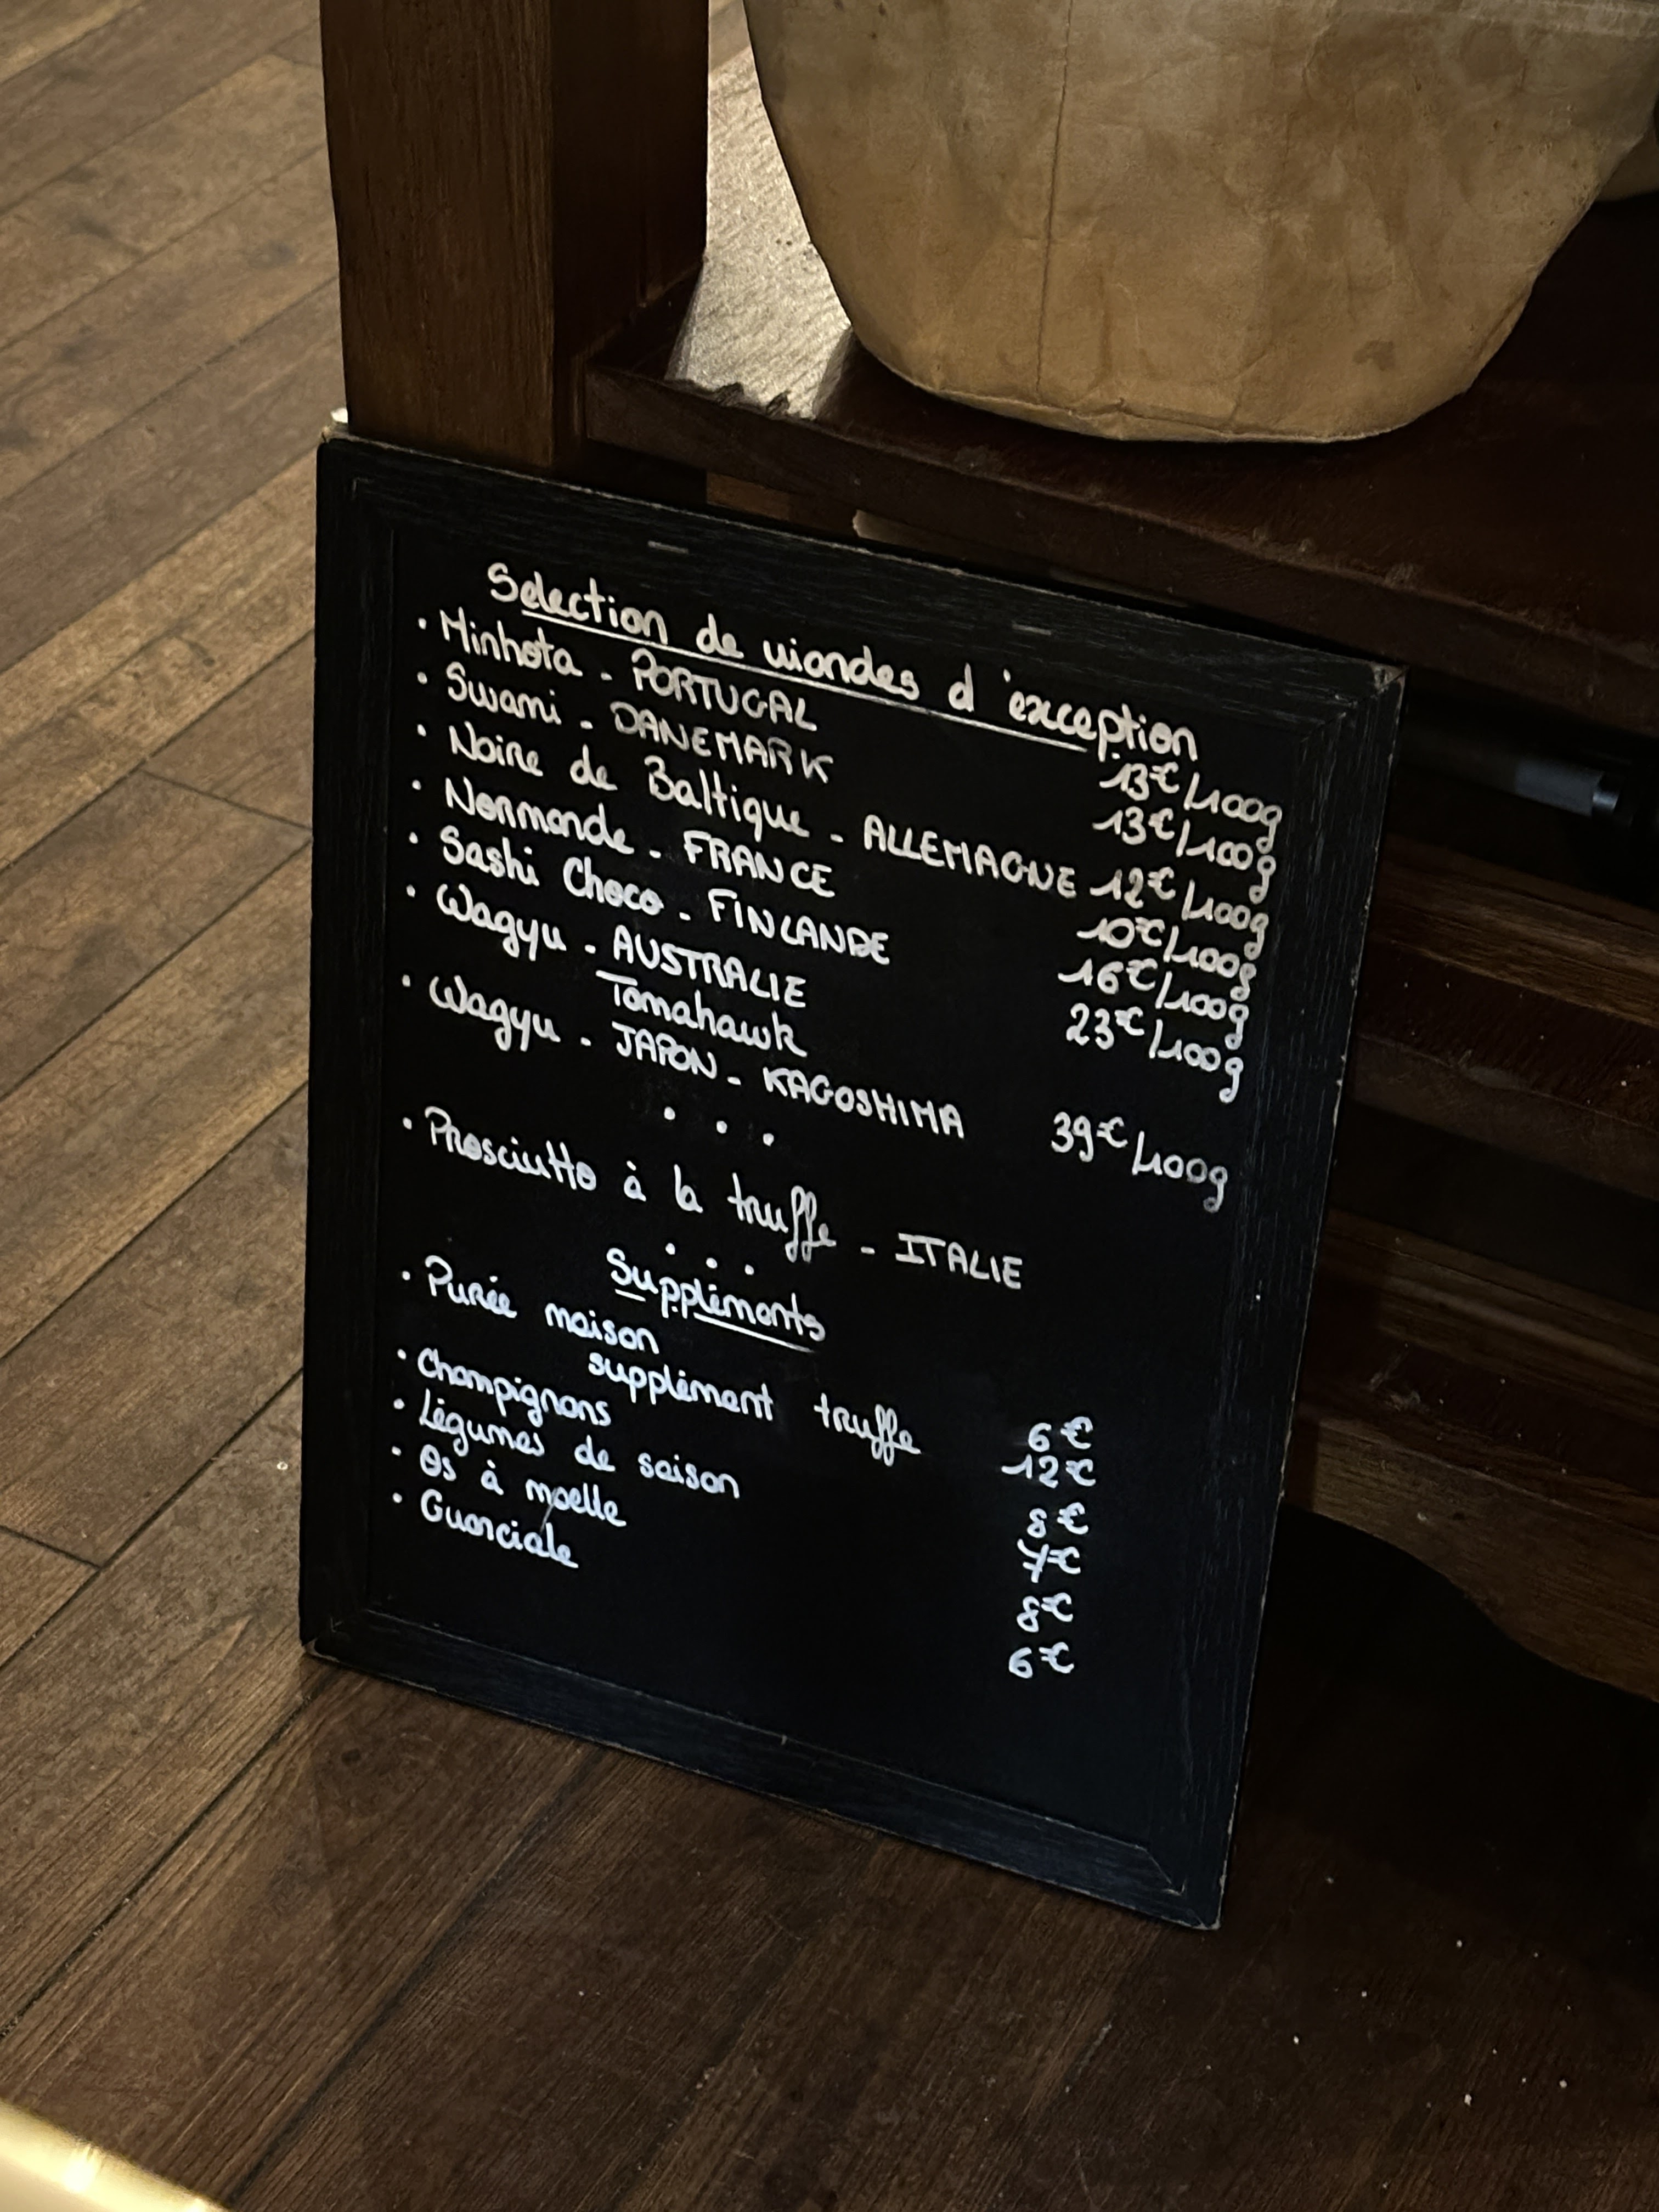 Selection de viandes d'exception
• Minhota - PORTUGAL 13€/100g
• Swami - DANEMARK 13€/100g
• Noire de Baltique - ALLEMAGNE 12€/100g
• Normande - FRANCE 10€/100g
• Sashi Choco - FINLANDE 16€/100g
• Wagyu - AUSTRALIE 23€/100g
Tomahawk
• Wagyu - JAPON - KAGOSHIMA 39€/100g
• • •
• Prosciutto à la truffe - ITALIE
• • •
Suppléments
• Purée maison 6€
supplément truffe 12€
• Champignons 8€
• Légumes de saison 7€
• Os à moelle 8€
• Guanciale 6€